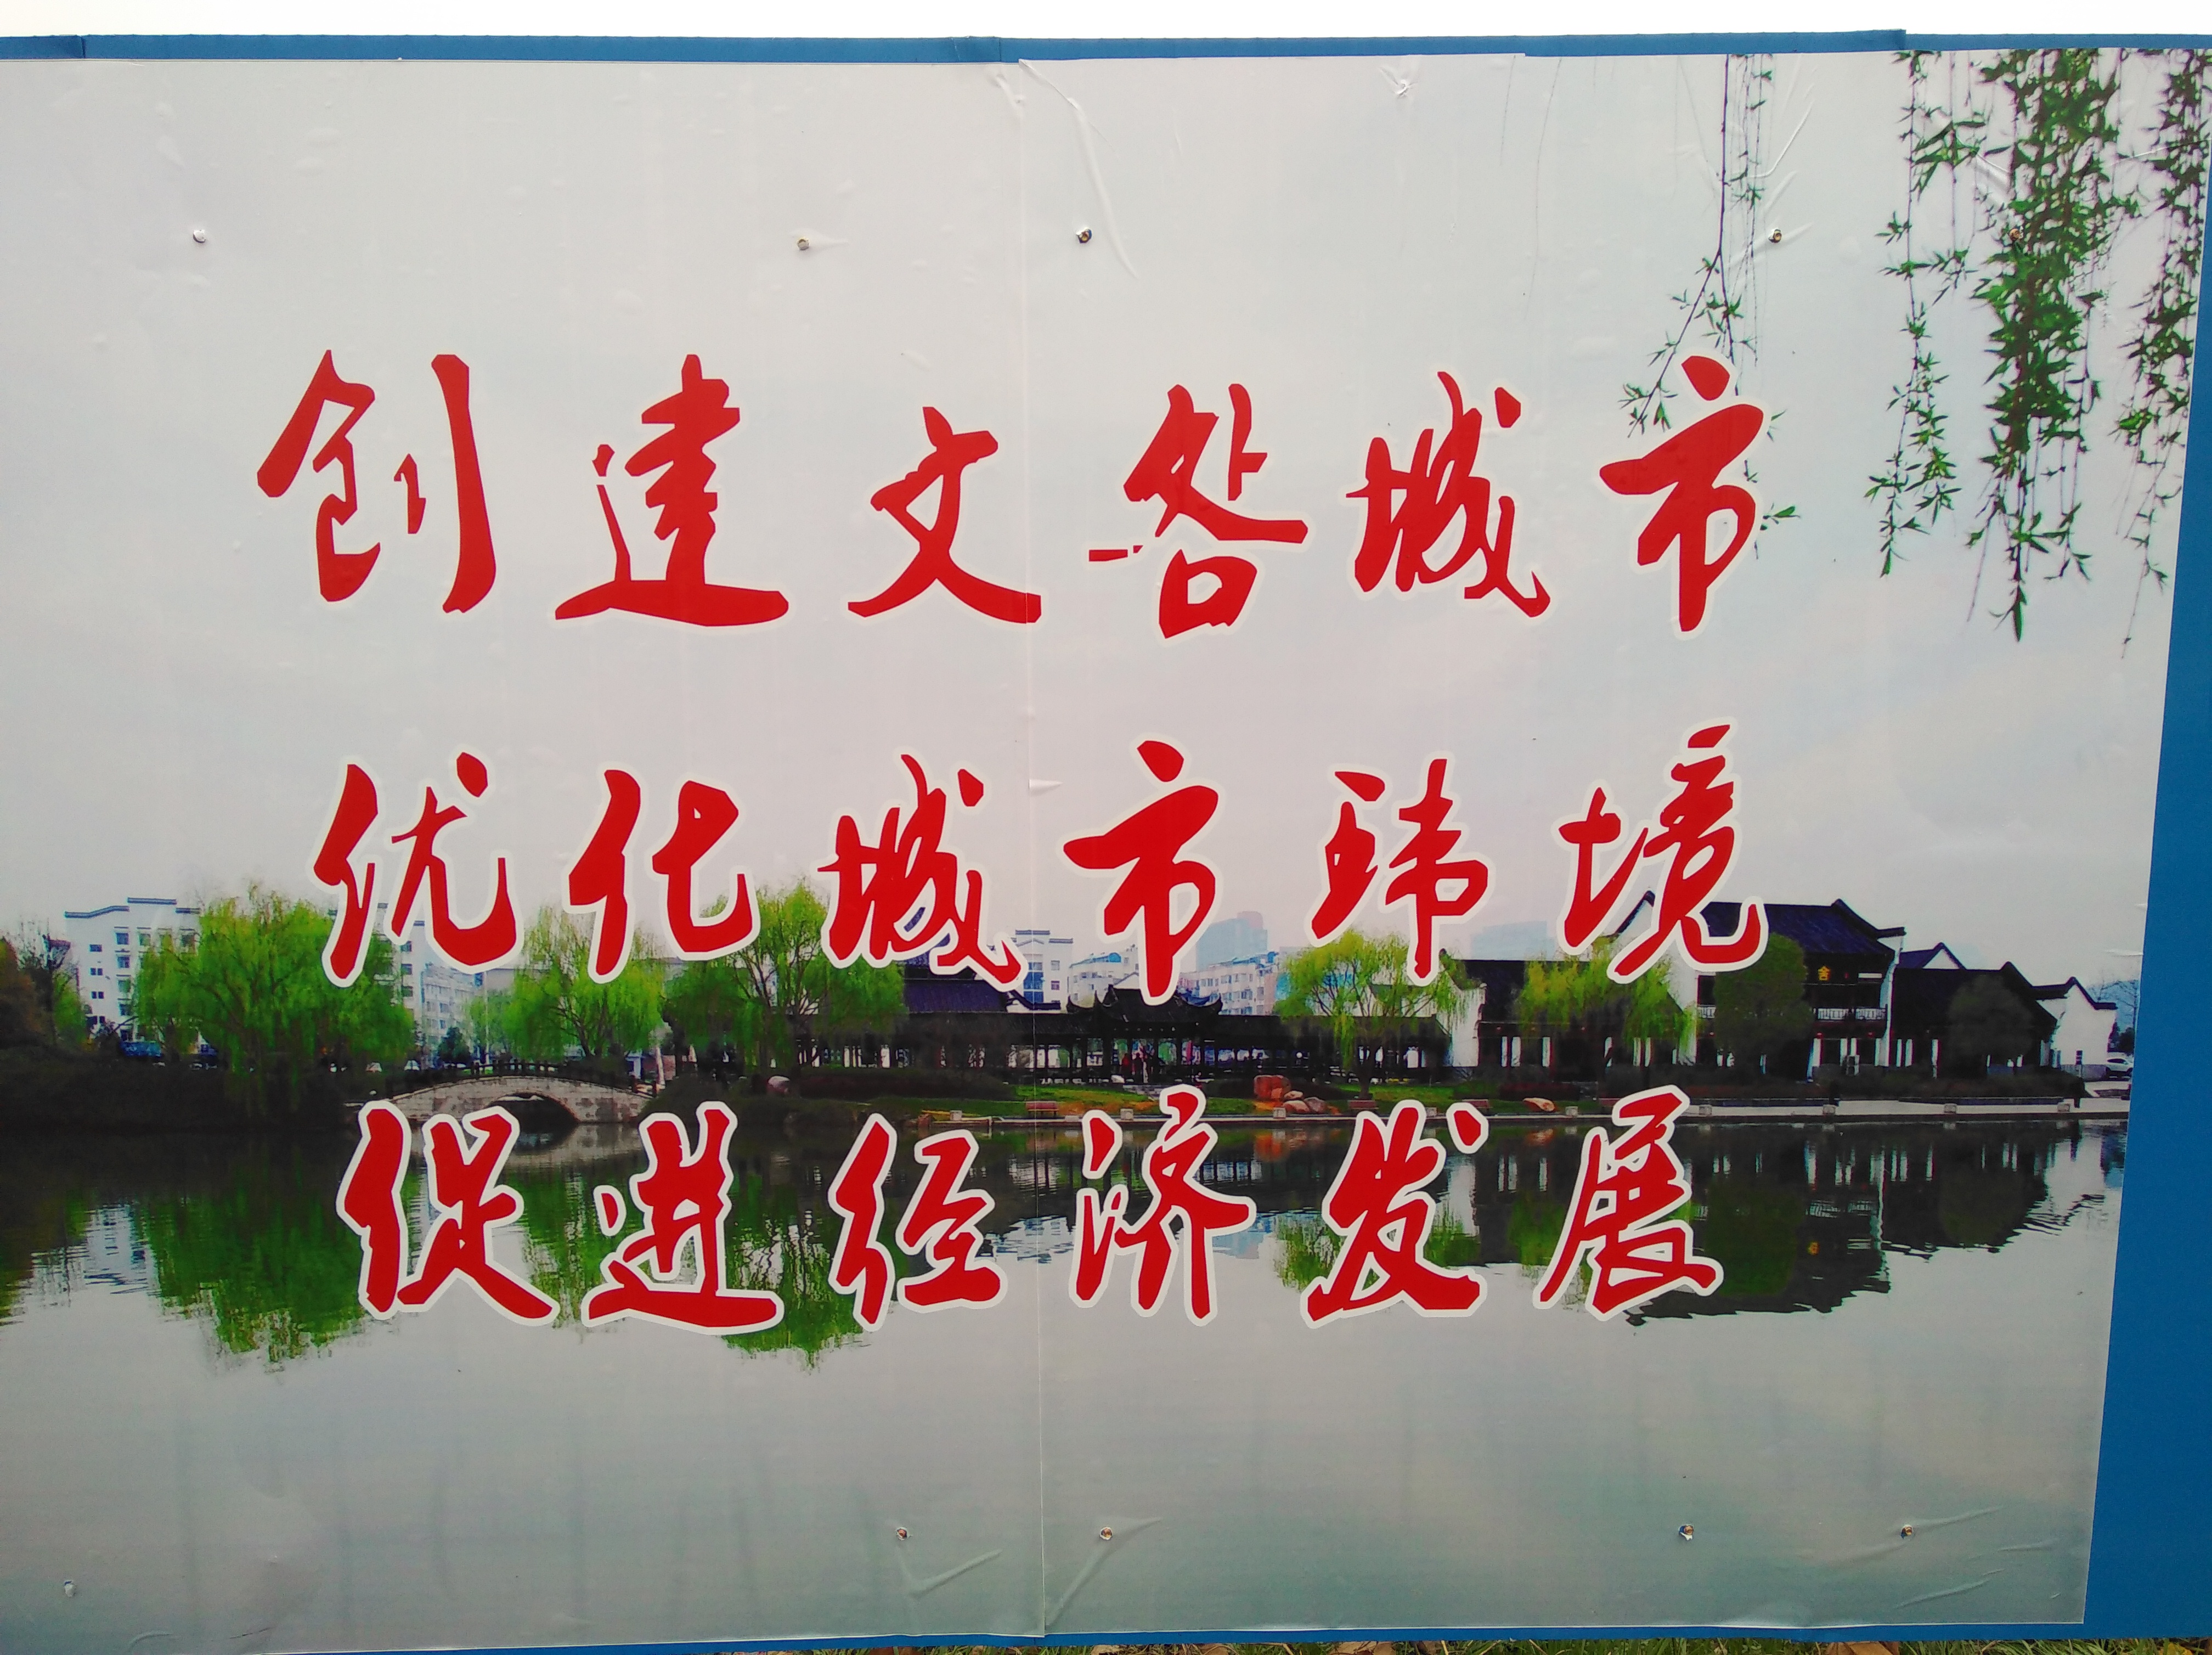 创建文咎城市
优化城市玮境
促进经济发展